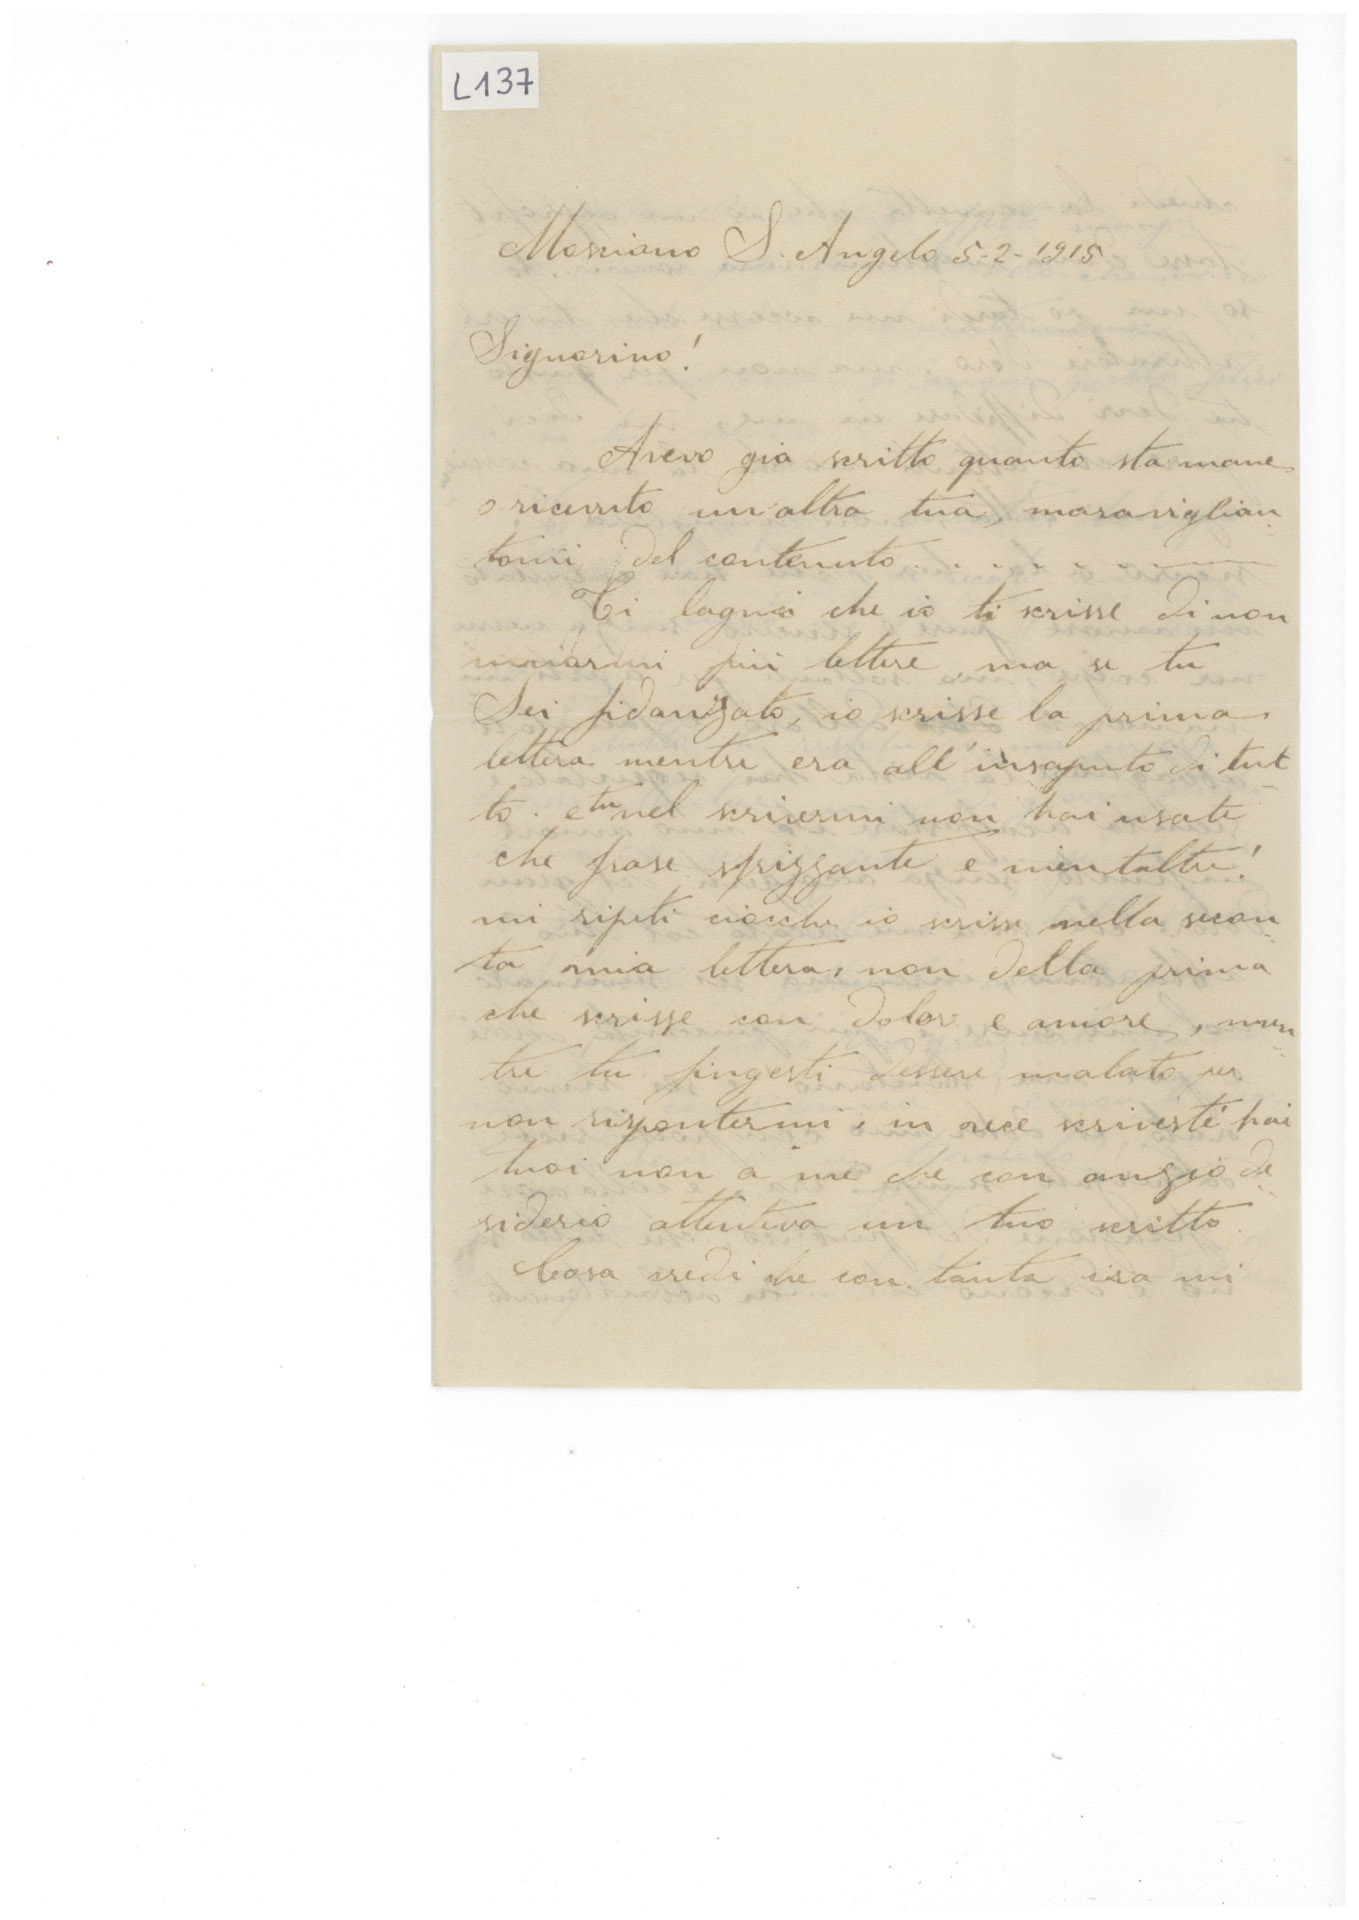 L137
Mosciano S. Angelo 5-2-1915
Signorino!
Avevo gia scritto quanto sta mane
o ricevuto un'altra tua, maraviglian
tomi del contenuto . . . . . .
Ti lagni che io ti scrisse di non
inviarmi più lettere, ma se tu
Sei fidanzato, io scrisse la prima
lettera mentre era all'insaputo di tut
to. e tu nel scrivermi non hai usate
che frase sprizzante e nient'altre!
mi ripeti ciocche io scrisse nella secon
ta mia lettera, non della prima
che scrisse con dolore e amore, men
tre tu fingesti dessere malato per
non rispontermi, in vece scriveste hai
tuoi non a me che con anzio de
siderio attenteva un tuo scritto.
Cosa credi che con tanta ira mi